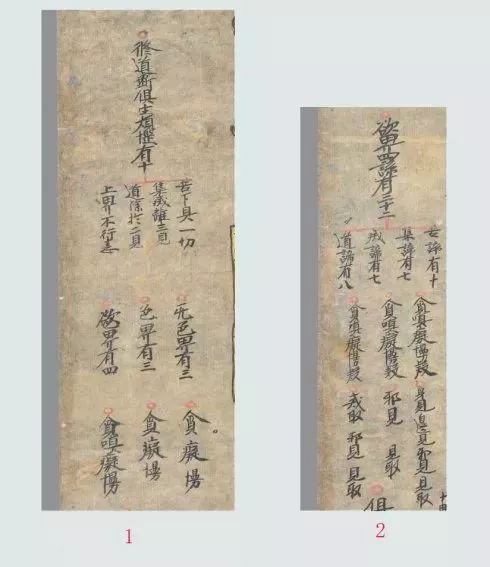 脩道断俱生煩惱有十
苦下具一切
集滅離三見
道除於二見
上界不行恚
无色界有三
色界有三
欲界有四
貪癡慢
貪癡慢
貪嗔癡慢
1
欲界四諦有三十二
苦諦有十
集諦有七
滅諦有七
道諦有八
貪嗔癡慢疑 身邊見邪見見取
貪嗔癡慢疑 邪見 見取
貪嗔癡慢疑 戒取 邪見 見取
俱
2